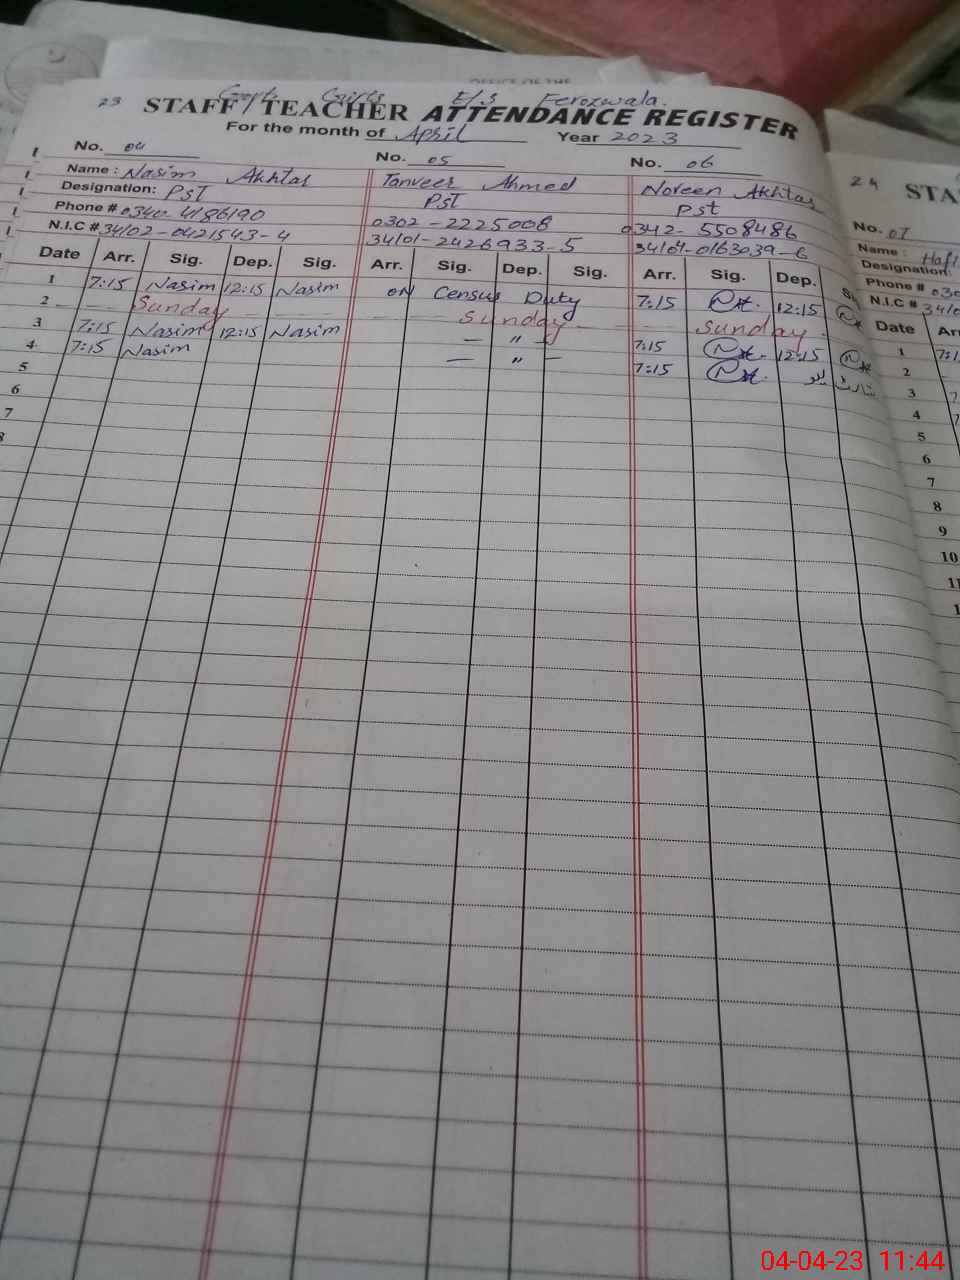 OFFICE OF THE
23 Govt. Girls E/S Ferozwala.
STAFF/TEACHER ATTENDANCE REGISTER
For the month of April Year 2023
No. 04 No. 05 No. 06
Name: Nasim Akhtar Tanveer Ahmed Noreen Akhtar
Designation: PST PST Pst
Phone # 0340-4186190 0302-2225008 0342-5508486
N.I.C # 34102-0421543-4 34101-2426933-5 34101-0163039-6
Date Arr. Sig. Dep. Sig. Arr. Sig. Dep. Sig. Arr. Sig. Dep. Sig.
1 7:15 Nasim 12:15 Nasim ON Census Duty 7:15 12:15
2 Sunday Sunday Sunday
3 7:15 Nasim 12:15 Nasim — " — 7:15 12:15
4 7:15 Nasim — " — 7:15
5
6
7
8
24 STA
No. 07
Name: Hafi
Designation:
Phone # 030
N.I.C # 3410
Date Arr
1 7:1
2
3 7
4 7
5
6
7
8
9
10
11
1
04-04-23 11:44